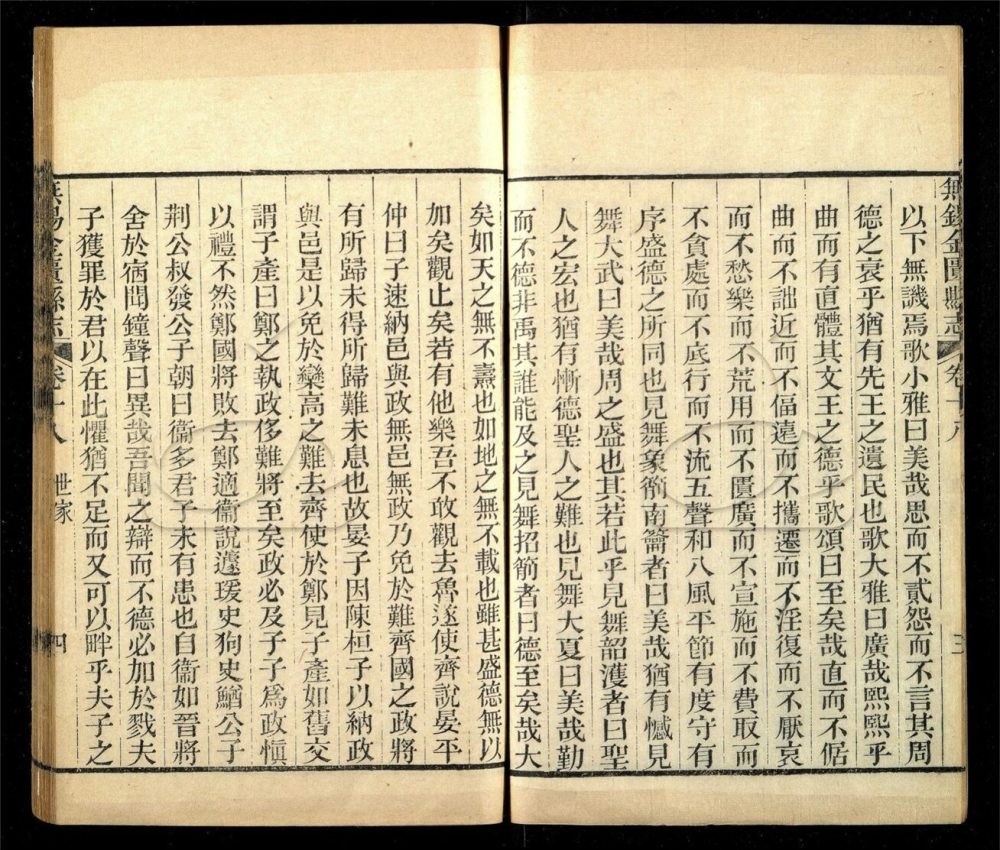 無錫金匱縣志 卷十八 三
以下無譏焉歌小雅曰美哉思而不貳怨而不言其周
德之衰乎猶有先王之遺民也歌大雅曰廣哉熙熙乎
曲而有直體其文王之德乎歌頌曰至矣哉直而不倨
曲而不詘近而不偪遠而不攜遷而不淫復而不厭哀
而不愁樂而不荒用而不匱廣而不宣施而不費取而
不貪處而不底行而不流五聲和八風平節有度守有
序盛德之所同也見舞象箾南籥者曰美哉猶有憾見
舞大武曰美哉周之盛也其若此乎見舞韶濩者曰聖
人之宏也猶有慚德聖人之難也見舞大夏曰美哉勤
而不德非禹其誰能及之見舞招箾者曰德至矣哉大
矣如天之無不燾也如地之無不載也雖甚盛德無以
加矣觀止矣若有他樂吾不敢觀去魯遂使齊說晏平
仲曰子速納邑與政無邑無政乃免於難齊國之政將
有所歸未得所歸難未息也故晏子因陳桓子以納政
與邑是以免於欒高之難去齊使於鄭見子產如舊交
謂子產曰鄭之執政侈難將至矣政必及子子為政愼
以禮不然鄭國將敗去鄭適衞說蘧瑗史狗史鰌公子
荆公叔發公子朝曰衞多君子未有患也自衞如晉將
舍於宿聞鐘聲曰異哉吾聞之辯而不德必加於戮夫
子獲罪於君以在此懼猶不足而又可以畔乎夫子之
無錫金匱縣志 卷十八 世家 四